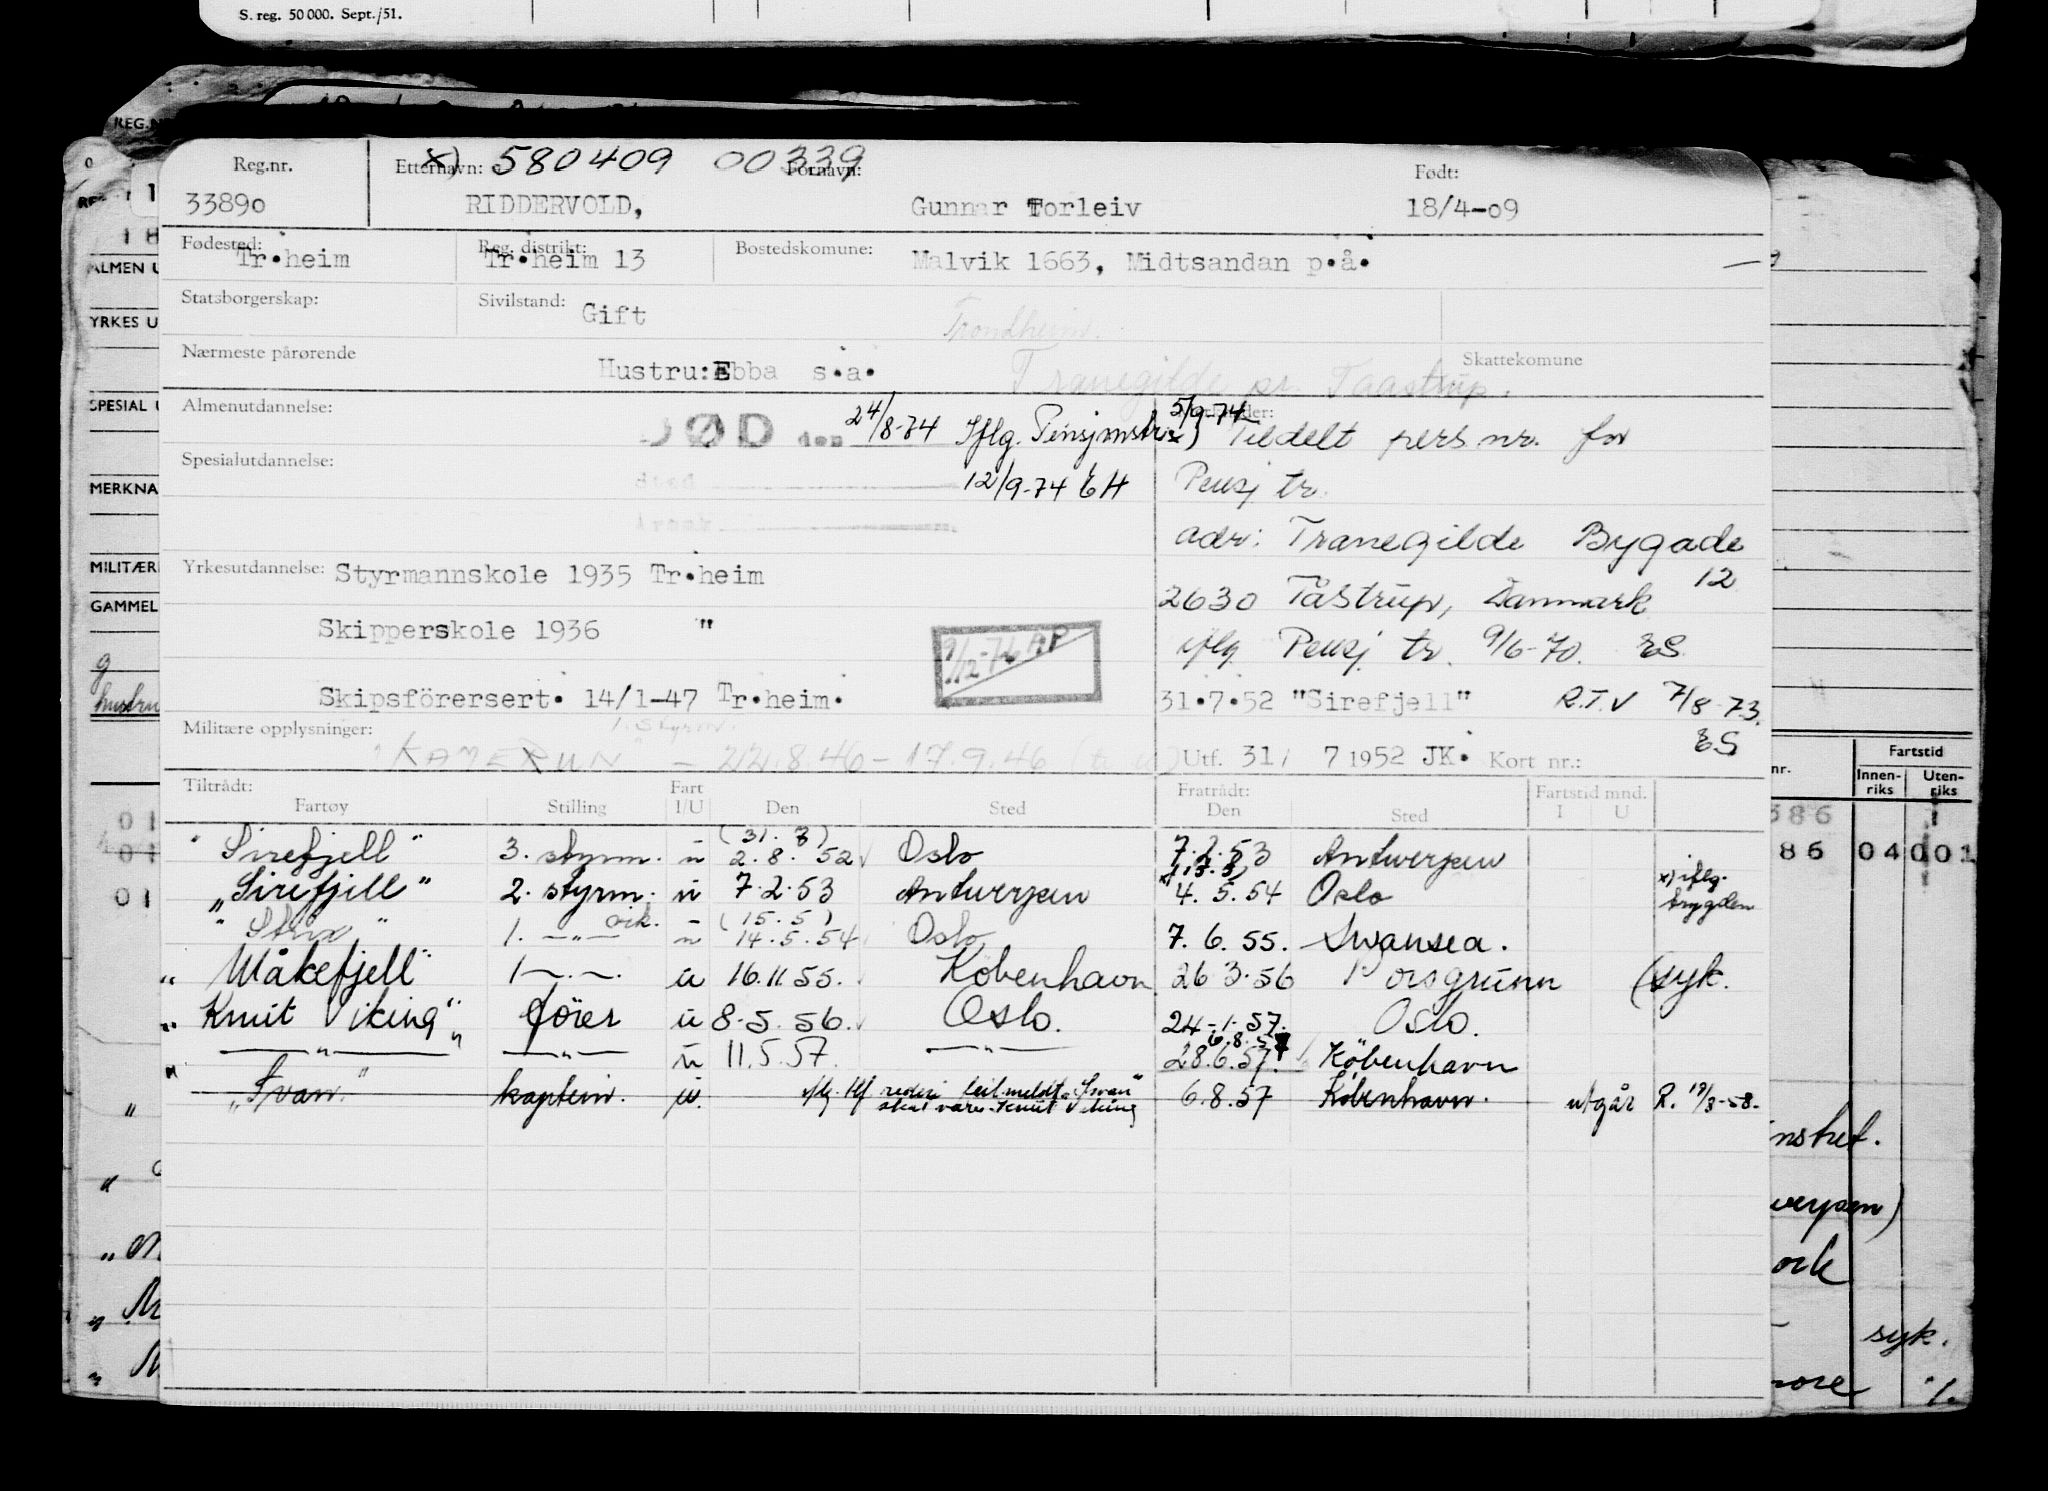 S. reg. 50 000. Sept./51.
Reg.nr. Etternavn: x) 580409 00339 Fornavn: Født:
33890 RIDDERVOLD, Gunnar Torleiv 18/4-09
Fødested: Reg. distrikt: Bostedskomune:
Tr.heim Tr.heim 13 Malvik 1663, Midtsandan p.å.
Statsborgerskap: Sivilstand: Gift Trondheim.
Nærmeste pårørende Hustru: Ebba s.a. Tranegilde pr. Taastrup. Skattekomune
Almenutdannelse: DØD den 24/8-74 Iflg. Pensjonstr. 5/9-74
12/9-74 EH
x) Tildelt pers nr. for
Pensj tr.
Spesialutdannelse:
adr: Tranegilde Bygade
12
2630 Tåstrup, Danmark
iflg Pensj tr. 9/6-70. ES
Yrkesutdannelse: Styrmannskole 1935 Tr.heim
Skipperskole 1936 "
9/12-76 AP
Skipsförersert. 14/1-47 Tr.heim.
31.7.52 "Sirefjell" R.T.V 7/8-73.
ES
Militære opplysninger: 1. styrm.
"KAMERUN" - 22.8.46 - 17.9.46
Utf. 31/ 7 1952 JK. Kort nr.:
Tiltrådt: Fart Fratrådt: Fartstid mnd.
Fartøy Stilling I/U Den Sted Den Sted I U
(31. 7)
"Sirefjell" 3. styrm. u 2.8.52 Oslo 7.2.53 Antwerpen
"Sirefjell" 2. styrm. u 7.2.53 Antwerpen 4.5.54 Oslo x) iflg. trygden
(15.5)
"Strix" 1. —"— u 14.5.54 Oslo 7.6.55. Swansea.
"Måkefjell" 1 —.—. u 16.11.55. København 26 3.56 Porsgrunn (syk.
"Knut Viking" fører u 8.5.56. Oslo. 24-1-57. Oslo.
6.8.57
—"— —"— u 11.5.57. —"— 28.6.57. København
"Svan" kaptein. u. iflg. tlf rederi feil meldt "Svan" skal være Knut Viking 6.8.57 København. utgår R. 19/3-58.
REG.N
ALMEN U
YRKES U
SPESIAL U
MERKNA
MILITÆR
GAMMEL
hustru
nr. Fartstid
Innenriks Utenriks
386
86 04 001
01
01
01
ønsket.
werpen)
ork
syk.
more